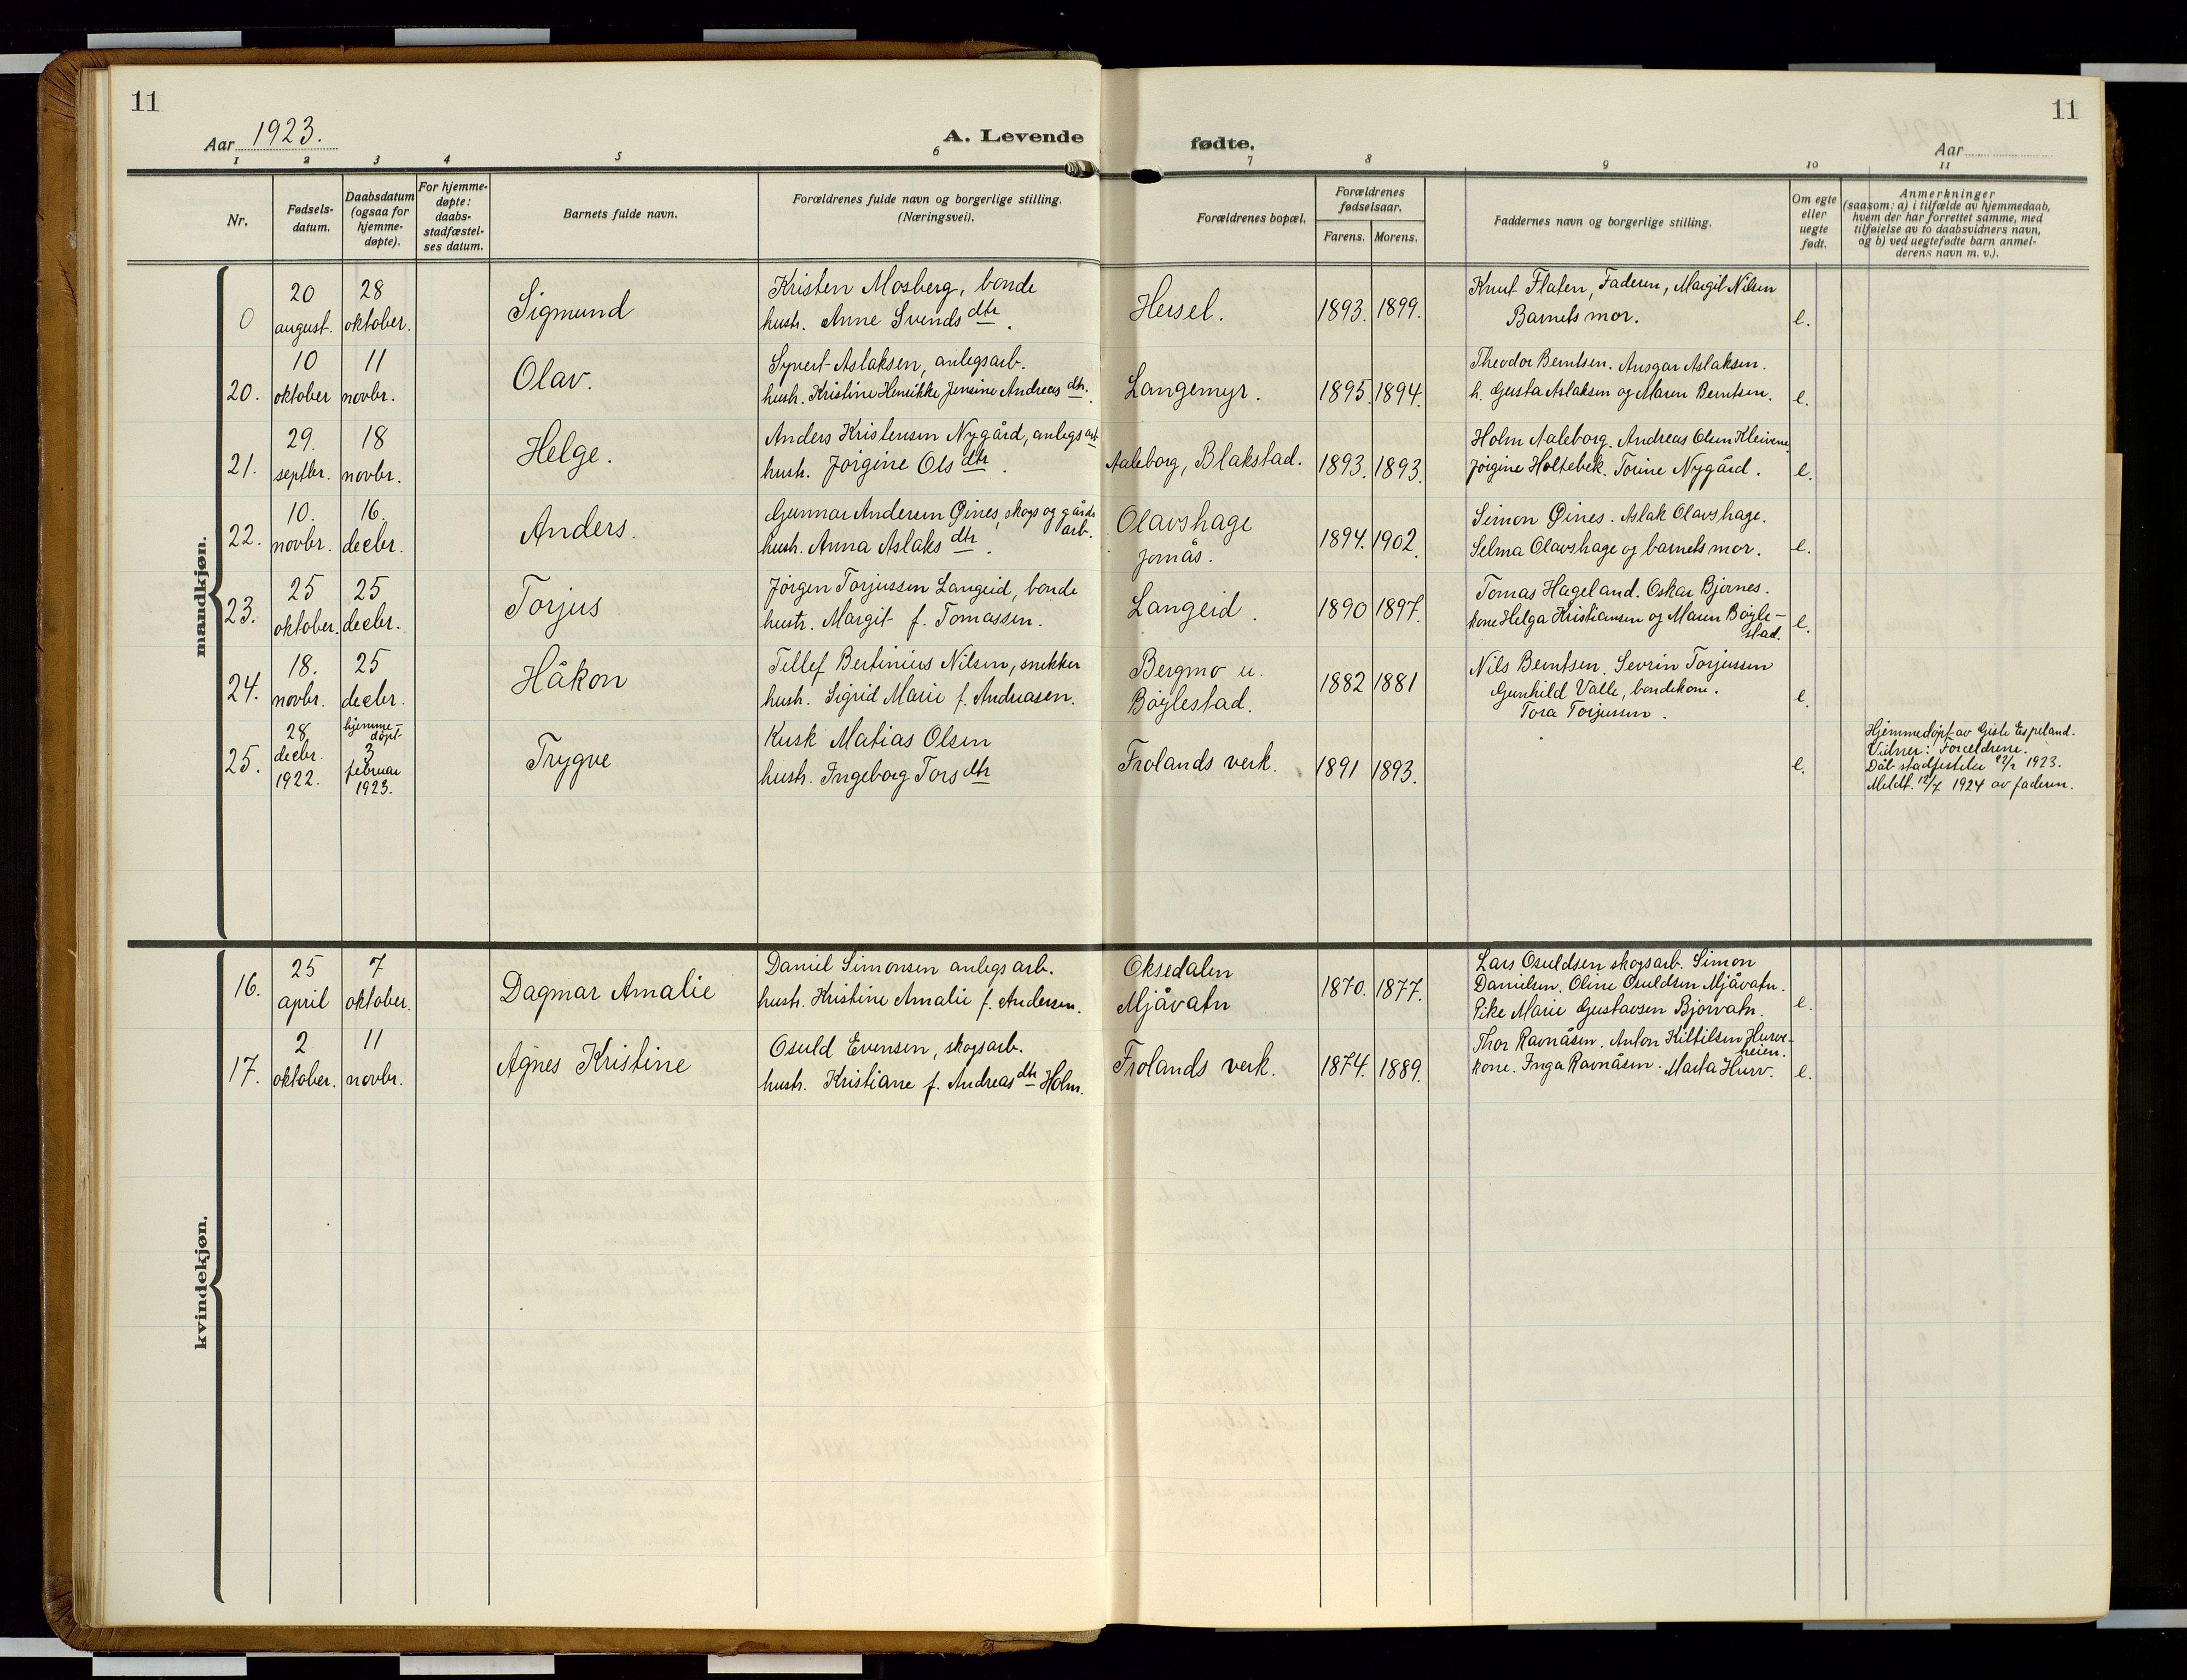 11
Aar 1923.
A. Levende
fødte.
Aar
11
1 2 3 4 5 6 7 8 9 10 11
Nr.
Fødsels-
datum.
Daabsdatum
(ogsaa for
hjemme-
døpte).
For hjemme-
døpte:
daabs-
stadfæstel-
ses datum.
Barnets fulde navn.
Forældrenes fulde navn og borgerlige stilling.
(Næringsvei).
Forældrenes bopæl.
Forældrenes
fødselsaar.
Farens. Morens.
Faddernes navn og borgerlige stilling.
Om egte
eller
uegte
født.
Anmerkninger
(saasom: a) i tilfælde av hjemmedaab,
hvem der har forrettet samme, med
tilføielse av to daabsvidners navn,
og b) ved uegtefødte barn anmel-
derens navn m. v.).
mandkjøn.
0
20
august.
28
oktober.
Sigmund
Kristen Mosberg, bonde
hustr. Anne Svends dtr.
Hersel.
1893. 1899.
Knut Flaten, Faderen, Margit Nilsen
Barnets mor.
e.
20.
10
oktober
11
novbr.
Olav.
Syvert Aslaksen, anlegsarb.
hustr. Kristine Henrikke Jensine Andreas dtr.
Langemyr.
1895. 1894.
Theodor Berntsen. Ansgar Aslaksen.
h. Gusta Aslaksen og Maren Berntsen.
e.
21.
29.
septbr.
18
novbr.
Helge.
Anders Kristensen Nygård, anlegsarb
hustr. Jørgine Ols dtr.
Aaleborg, Blakstad.
1893. 1893.
Holm Aaleborg. Andreas Olsen Kleivene
Jørgine Holtebek. Torine Nygård.
e.
22.
10.
novbr.
16.
decbr.
Anders.
Gunnar Andersen Øines, skogs og gårds
arb.
hustr. Anna Aslaks dtr.
Olavshage
Jomås.
1894. 1902.
Simon Øines. Aslak Olavshage.
Selma Olavshage og barnets mor.
e.
23.
25
oktober.
25
decbr.
Torjus
Jørgen Torjussen Langeid, bonde
hustr. Margit f. Tomassen.
Langeid.
1890 1897.
Tomas Hageland. Oskar Bjørnes.
kone Helga Kristiansen og Maren Bøgle-
stad.
e.
24.
18.
novbr.
25
decbr.
Håkon
Tellef Bertinius Nilsen, snekker
hustr. Sigrid Marie f. Andreasen.
Bergmo u.
Bøglestad.
1882 1881
Nils Berntsen. Sevrin Torjussen
Gunhild Valle, bondekone.
Tora Torjussen.
e.
25.
28
decbr.
1922.
hjemme-
døpt
3
februar
1923.
Trygve
Kusk Matias Olsen
hustr. Ingeborg Tors dtr
Frolands verk.
1891 1893.
e.
Hjemmedøpt av Gisle Espeland.
Vidner: Forældrene.
Dåb stadfestelse 1923.
Meldt. 12/7 1924 av faderen.
kvindekjøn.
16.
25
april
7
oktober.
Dagmar Amalie
Daniel Simonsen anlegsarb.
hustr. Kristine Amalie f. Andersen.
Oksedalen
Mjåvatn
1870. 1877.
Lars Osuldsen skogsarb. Simon
Danielsen. Oline Osuldsen Mjåvatn.
Pike Marie Gustavsen Bjorvatn.
e.
17.
2
oktober.
11
novbr.
Agnes Kristine
Osuld Evensen, skogsarb.
hustr. Kristiane f. Andreas dtr Holm.
Frolands verk.
1874. 1889.
Thor Ravnåsen. Anton Kittilsen Hurv-
heien.
kone. Inga Ravnåsen. Marta Hurv.
e.